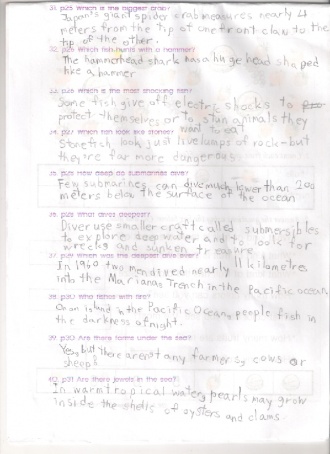 31. p25 Which is the biggest crab?
Japan's giant spider crab measures nearly 4
meters from the tip of one front claw to the
tip of the other.
32. p26 Which fish hunts with a hammer?
The hammerhead shark has a huge head shaped
like a hammer
33. p26 Which is the most shocking fish?
Some fish give off electric shocks to
protect themselves or to stun animals they
want to eat
34. p27 Which fish look like stones?
Stonefish look just like lumps of rock-but
they're far more dangerous.
35. p28 How deep do submarines dive?
Few submarines can dive much lower than 200
meters below the surface of the ocean
36. p28 What dives deepest?
Diver use smaller craft called submersibles
to explore deep water and to look for
wrecks and sunken treasure
37. p29 Which was the deepest dive ever?
In 1960 two men dived nearly 11 kilometres
into the Marianas Trench in the Pacific ocean
38. p30 Who fishes with fire?
On an island in the Pacific Ocean, people fish in
the darkness of night.
39. p30 Are there farms under the sea?
Yes, but there aren't any farmers, cows or
sheep!
40. p31 Are there jewels in the sea?
In warm tropical water, pearls may grow
inside the shells of oysters and clams